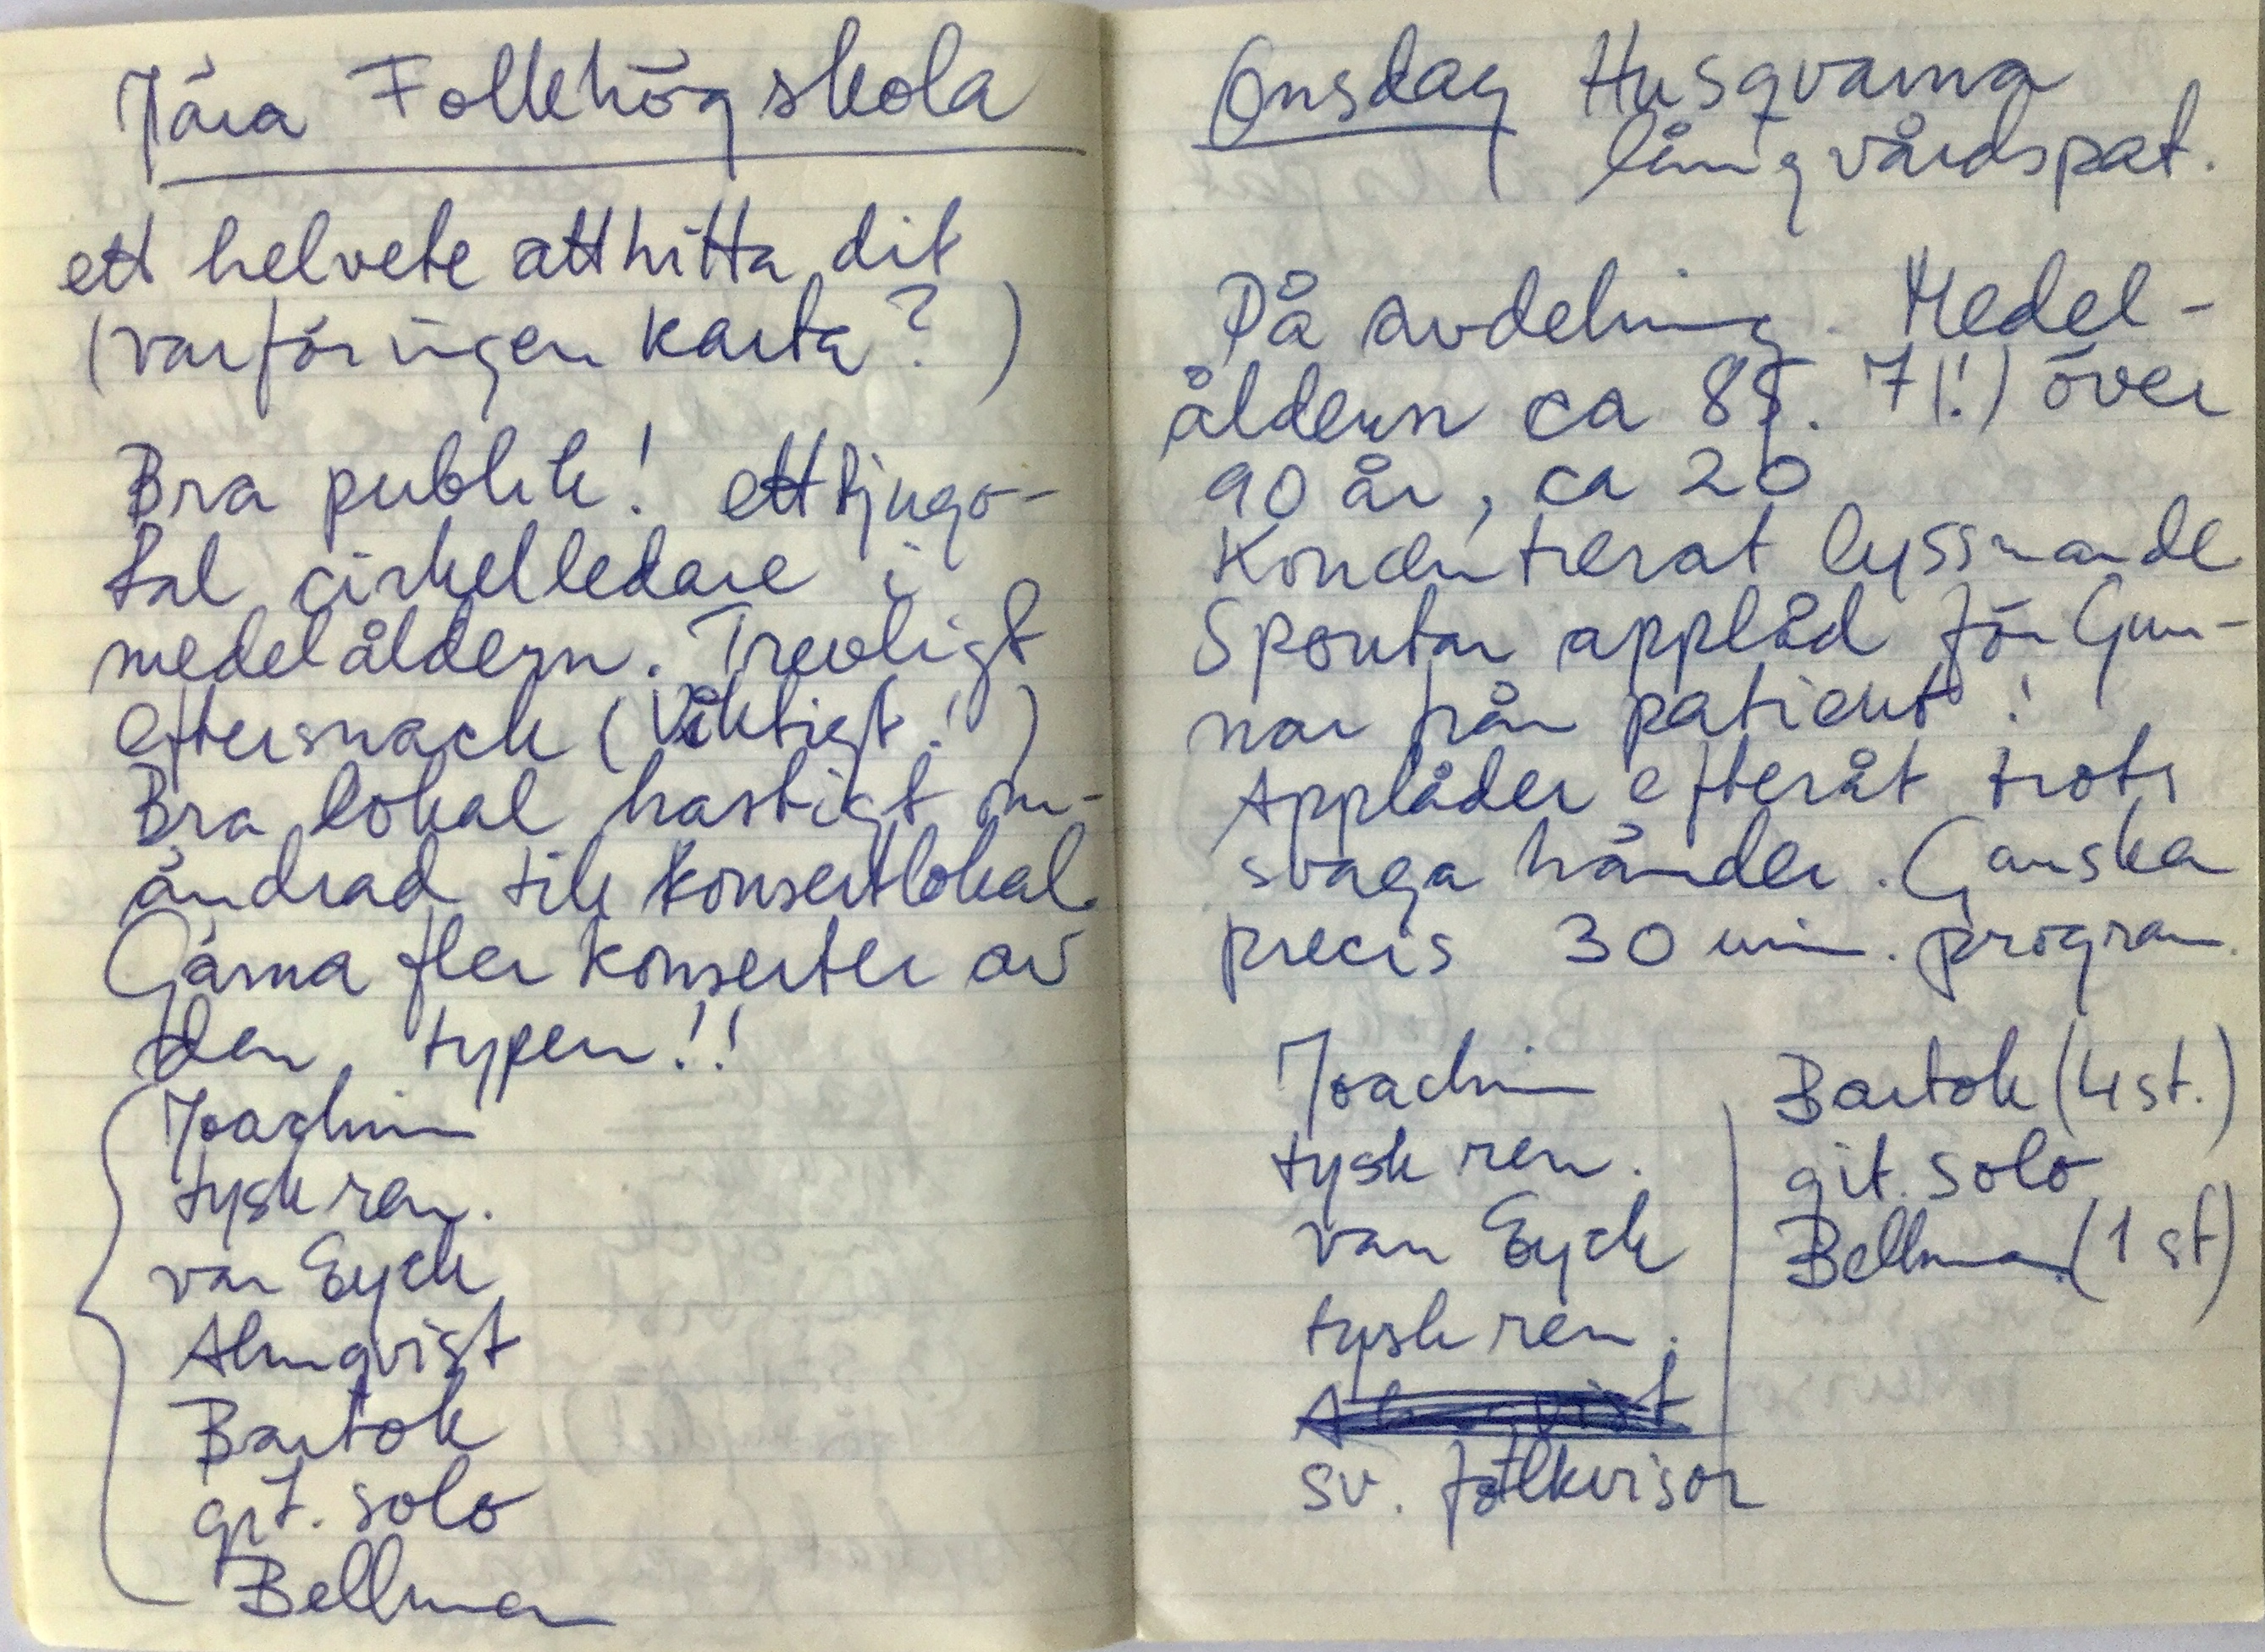 Jära Folkhögskola
ett helvete att hitta dit
(varför ingen karta?)
Bra publik! ett tjugo-
tal cirkelledare i
medelåldern. Trevligt
eftersnack (Viktigt!)
Bra lokal hastigt om-
ändrad till konsertlokal.
Gärna fler konserter av
den typen!!
Joachim
tysk ren.
van Eyck
Almqvist
Bartok
git. solo
Bellman
Onsdag Husqvarna
långvårdspat.
På avdelning. Medel-
åldern ca 85. 7(!) över
90 år, ca 20
Koncentrerat lyssnande
Spontan applåd för Gun-
nar från patient!
Applåder efteråt trots
svaga händer. Ganska
precis 30 min. program.
Joachim
tysk ren.
van Eyck
tysk ren.
Almqvist
sv. folkvisor
Bartok (4 st.)
git. solo
Bellman (1 st)